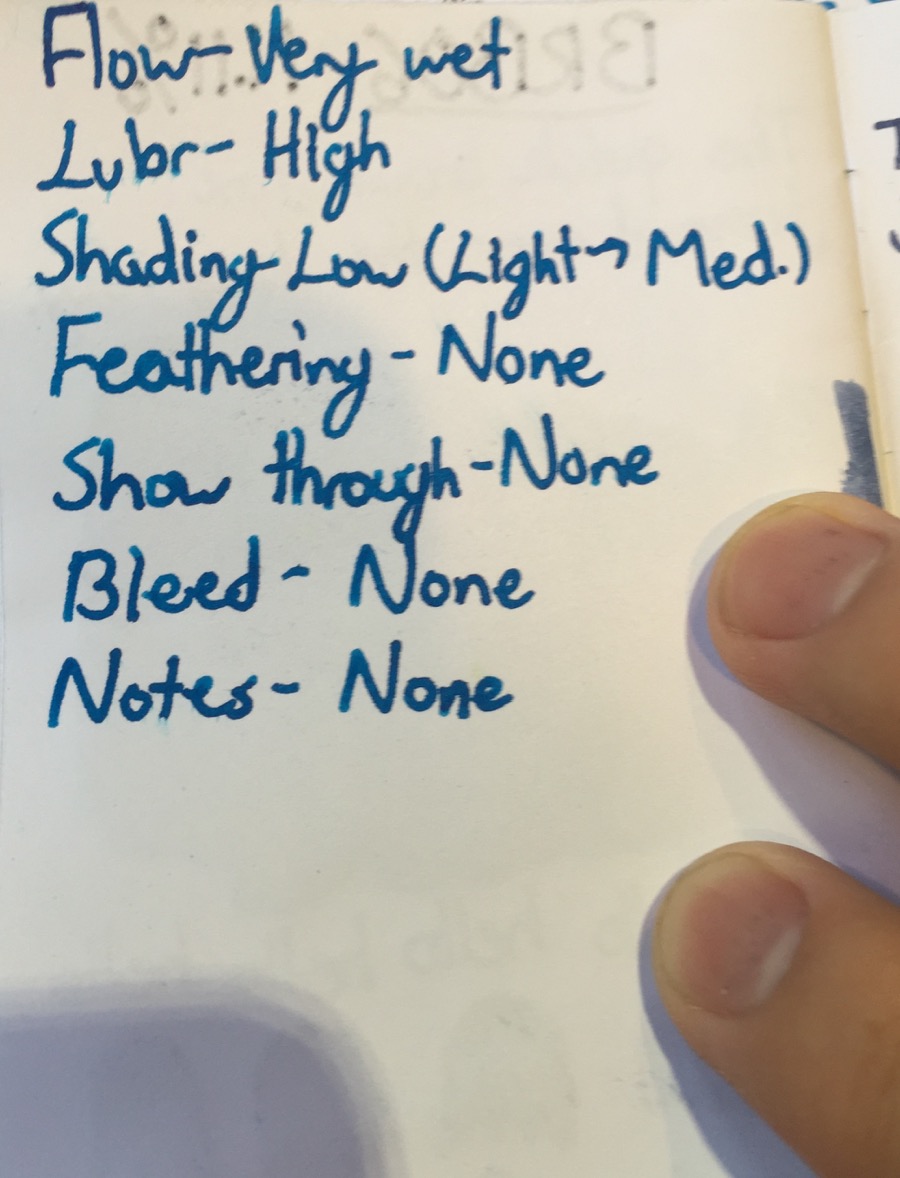 Flow- Very wet
Lubr- High
Shading- Low (Light → Med.)
Feathering - None
Show through - None
Bleed - None
Notes - None